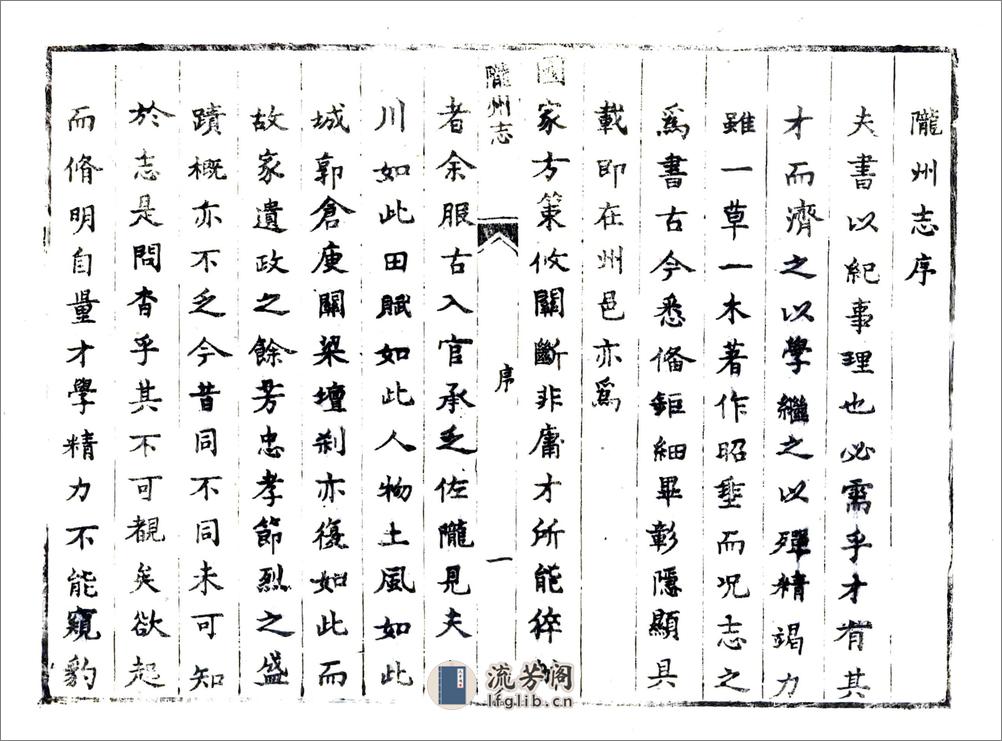 隴州志序
夫書以紀事理也必需乎才有其
才而濟之以學繼之以殫精竭力
雖一草一木著作昭垂而况志之
爲書古今悉俻鉅細畢彰隱顯具
載即在州邑亦爲
國家方策攸關斷非庸才所能稡
隴州志
序
一
者余服古入官承乏佐隴見夫
川如此田賦如此人物土風如此
城郭倉庾關梁壇刹亦復如此而
故家遺政之餘芳忠孝節烈之盛
蹟概亦不乏今昔同不同未可知
於志是問杳乎其不可覩矣欲起
而脩明自量才學精力不能窺豹
流芳阁
lfglib.cn